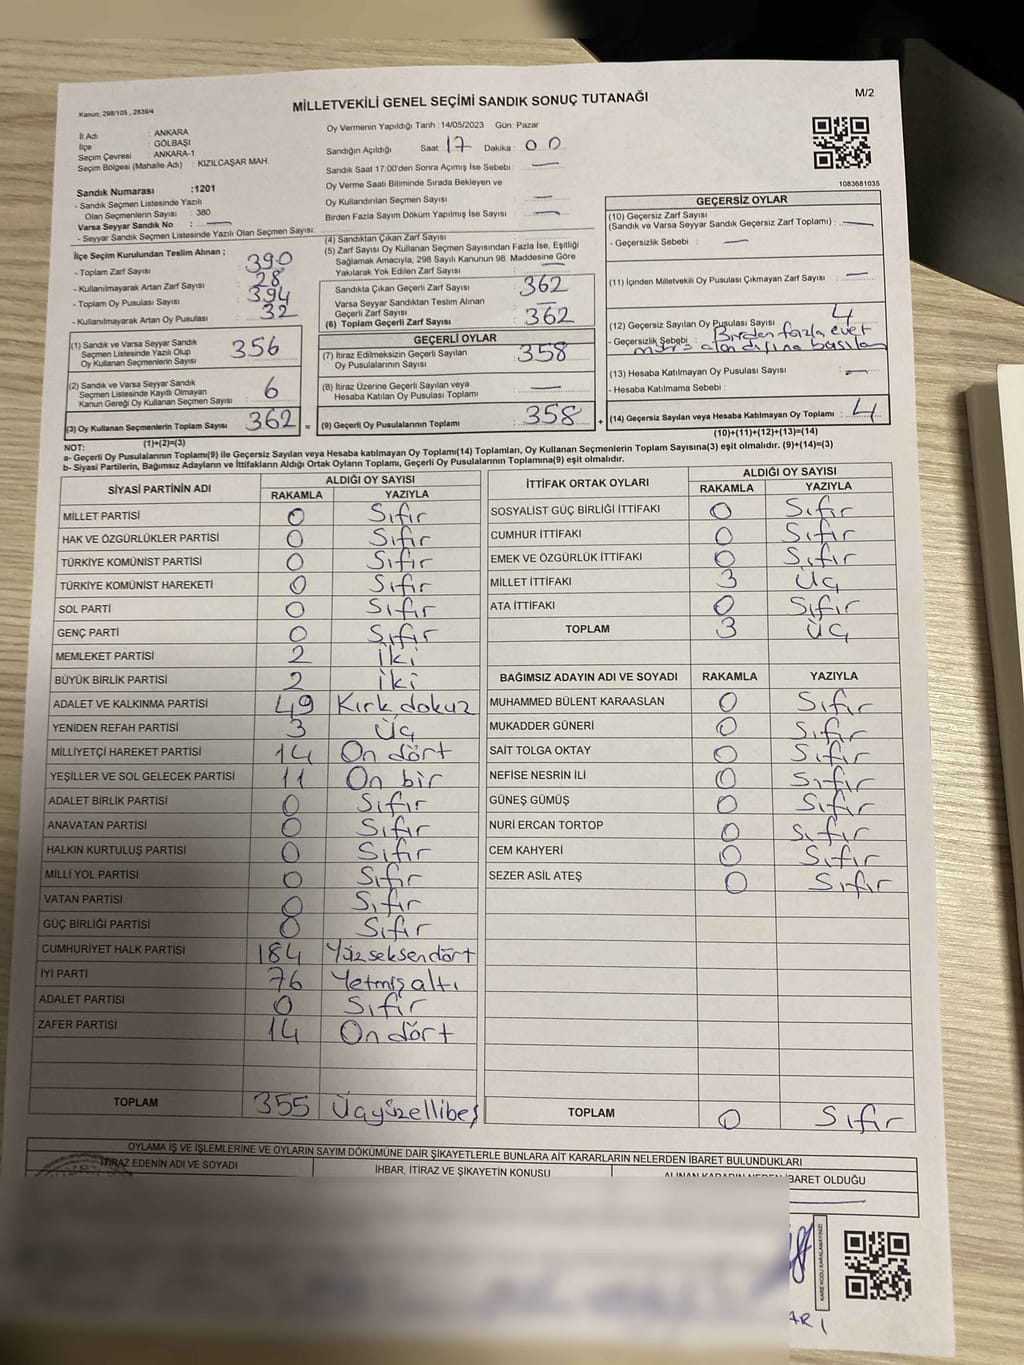 Kanun; 298/105 , 2839/4
MİLLETVEKİLİ GENEL SEÇİMİ SANDIK SONUÇ TUTANAĞI
M/2
İl Adı : ANKARA
İlçe : GÖLBAŞI
Seçim Çevresi : ANKARA-1
Seçim Bölgesi (Mahalle Adı) : KIZILCAŞAR MAH.
Sandık Numarası :1201
- Sandık Seçmen Listesinde Yazılı
Olan Seçmenlerin Sayısı : 380
Varsa Seyyar Sandık No : —
- Seyyar Sandık Seçmen Listesinde Yazılı Olan Seçmen Sayısı:
İlçe Seçim Kurulundan Teslim Alınan ;
- Toplam Zarf Sayısı : 390
- Kullanılmayarak Artan Zarf Sayısı : 28
- Toplam Oy Pusulası Sayısı : 394
- Kullanılmayarak Artan Oy Pusulası : 32
(1) Sandık ve Varsa Seyyar Sandık
Seçmen Listesinde Yazılı Olup
Oy Kullanan Seçmenlerin Sayısı : 356
(2) Sandık ve Varsa Seyyar Sandık
Seçmen Listesinde Kayıtlı Olmayan
Kanun Gereği Oy Kullanan Seçmen Sayısı : 6
(3) Oy Kullanan Seçmenlerin Toplam Sayısı : 362 =
(1)+(2)=(3)
Oy Vermenin Yapıldığı Tarih :14/05/2023 Gün: Pazar
Sandığın Açıldığı Saat: 17 Dakika : 00
Sandık Saat 17:00'den Sonra Açımış İse Sebebi : —
Oy Verme Saati Bitiminde Sırada Bekleyen ve
Oy Kullandırılan Seçmen Sayısı : —
Birden Fazla Sayım Döküm Yapılmış İse Sayısı : —
(4) Sandıktan Çıkan Zarf Sayısı :
(5) Zarf Sayısı Oy Kullanan Seçmen Sayısından Fazla İse, Eşitliği
Sağlamak Amacıyla, 298 Sayılı Kanunun 98. Maddesine Göre
Yakılarak Yok Edilen Zarf Sayısı : —
Sandıkta Çıkan Geçerli Zarf Sayısı : 362
Varsa Seyyar Sandıktan Teslim Alınan
Geçerli Zarf Sayısı : —
(6) Toplam Geçerli Zarf Sayısı : 362
GEÇERLİ OYLAR
(7) İtiraz Edilmeksizin Geçerli Sayılan
Oy Pusulalarının Sayısı : 358
(8) İtiraz Üzerine Geçerli Sayılan veya
Hesaba Katılan Oy Pusulası Toplamı : —
(9) Geçerli Oy Pusulalarının Toplamı : 358 +
1083681035
GEÇERSİZ OYLAR
(10) Geçersiz Zarf Sayısı
(Sandık ve Varsa Seyyar Sandık Geçersiz Zarf Toplamı) : —
- Geçersizlik Sebebi : —
(11) İçinden Milletvekili Oy Pusulası Çıkmayan Zarf Sayısı : —
(12) Geçersiz Sayılan Oy Pusulası Sayısı : 4
- Geçersizlik Sebebi : Birden fazla evet
alan dışına
(13) Hesaba Katılmayan Oy Pusulası Sayısı : —
- Hesaba Katılmama Sebebi :
(14) Geçersiz Sayılan veya Hesaba Katılmayan Oy Toplamı : 4
(10)+(11)+(12)+(13)=(14)
NOT:
a- Geçerli Oy Pusulalarının Toplamı(9) ile Geçersiz Sayılan veya Hesaba katılmayan Oy Toplamı(14) Toplamları, Oy Kullanan Seçmenlerin Toplam Sayısına(3) eşit olmalıdır. (9)+(14)=(3)
b- Siyasi Partilerin, Bağımsız Adayların ve İttifakların Aldığı Ortak Oyların Toplamı, Geçerli Oy Pusulalarının Toplamına(9) eşit olmalıdır.
SİYASİ PARTİNİN ADI ALDIĞI OY SAYISI
RAKAMLA YAZIYLA
MİLLET PARTİSİ 0 Sıfır
HAK VE ÖZGÜRLÜKLER PARTİSİ 0 Sıfır
TÜRKİYE KOMÜNİST PARTİSİ 0 Sıfır
TÜRKİYE KOMÜNİST HAREKETİ 0 Sıfır
SOL PARTİ 0 Sıfır
GENÇ PARTİ 0 Sıfır
MEMLEKET PARTİSİ 2 İki
BÜYÜK BİRLİK PARTİSİ 2 iki
ADALET VE KALKINMA PARTİSİ 49 Kırk dokuz
YENİDEN REFAH PARTİSİ 3 Üç
MİLLİYETÇİ HAREKET PARTİSİ 14 On dört
YEŞİLLER VE SOL GELECEK PARTİSİ 11 On bir
ADALET BİRLİK PARTİSİ 0 Sıfır
ANAVATAN PARTİSİ 0 Sıfır
HALKIN KURTULUŞ PARTİSİ 0 Sıfır
MİLLİ YOL PARTİSİ 0 Sıfır
VATAN PARTİSİ 0 Sıfır
GÜÇ BİRLİĞİ PARTİSİ 0 Sıfır
CUMHURİYET HALK PARTİSİ 184 Yüzseksendört
İYİ PARTİ 76 Yetmiş altı
ADALET PARTİSİ 0 Sıfır
ZAFER PARTİSİ 14 On dört
TOPLAM 355 Üçyüzellibeş
İTTİFAK ORTAK OYLARI ALDIĞI OY SAYISI
RAKAMLA YAZIYLA
SOSYALİST GÜÇ BİRLİĞİ İTTİFAKI 0 Sıfır
CUMHUR İTTİFAKI 0 Sıfır
EMEK VE ÖZGÜRLÜK İTTİFAKI 0 Sıfır
MİLLET İTTİFAKI 3 Üç
ATA İTTİFAKI 0 Sıfır
TOPLAM 3 Üç
BAĞIMSIZ ADAYIN ADI VE SOYADI RAKAMLA YAZIYLA
MUHAMMED BÜLENT KARAASLAN 0 Sıfır
MUKADDER GÜNERİ 0 Sıfır
SAİT TOLGA OKTAY 0 Sıfır
NEFİSE NESRİN İLİ 0 Sıfır
GÜNEŞ GÜMÜŞ 0 Sıfır
NURİ ERCAN TORTOP 0 Sıfır
CEM KAHYERİ 0 Sıfır
SEZER ASİL ATEŞ 0 Sıfır
TOPLAM 0 Sıfır
OYLAMA İŞ VE İŞLEMLERİNE VE OYLARIN SAYIM DÖKÜMÜNE DAİR ŞİKAYETLERLE BUNLARA AİT KARARLARIN NELERDEN İBARET BULUNDUKLARI
İTİRAZ EDENİN ADI VE SOYADI İHBAR, İTİRAZ VE ŞİKAYETİN KONUSU ALINAN KARARIN NEDEN İBARET OLDUĞU
KARE KODU KARALAMAYINIZ!